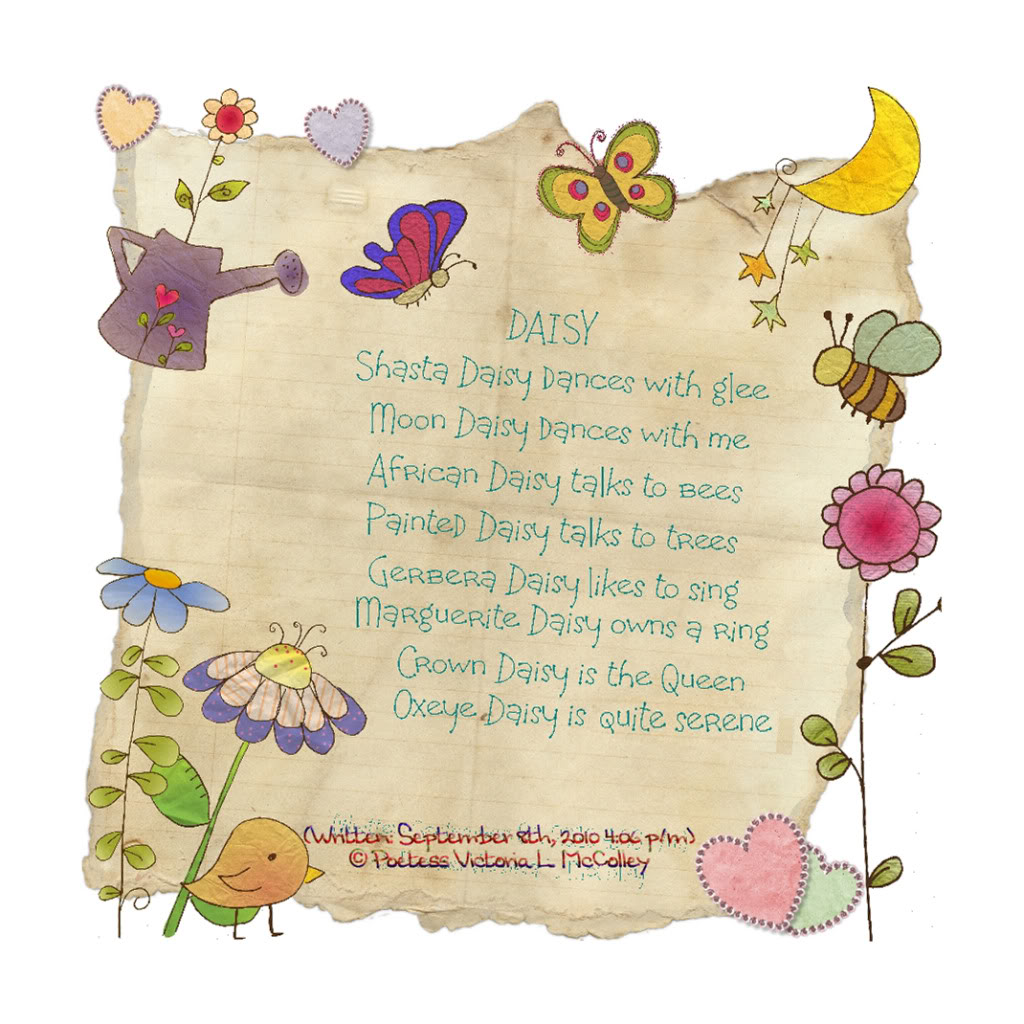 DAISY
Shasta Daisy Dances with glee
Moon Daisy Dances with me
African Daisy talks to Bees
Painted Daisy talks to trees
Gerbera Daisy likes to sing
Marguerite Daisy owns a ring
Crown Daisy is the Queen
Oxeye Daisy is quite serene
(Written: September 8th, 2010 4:06 p/m)
© Poetess Victoria L. McColley